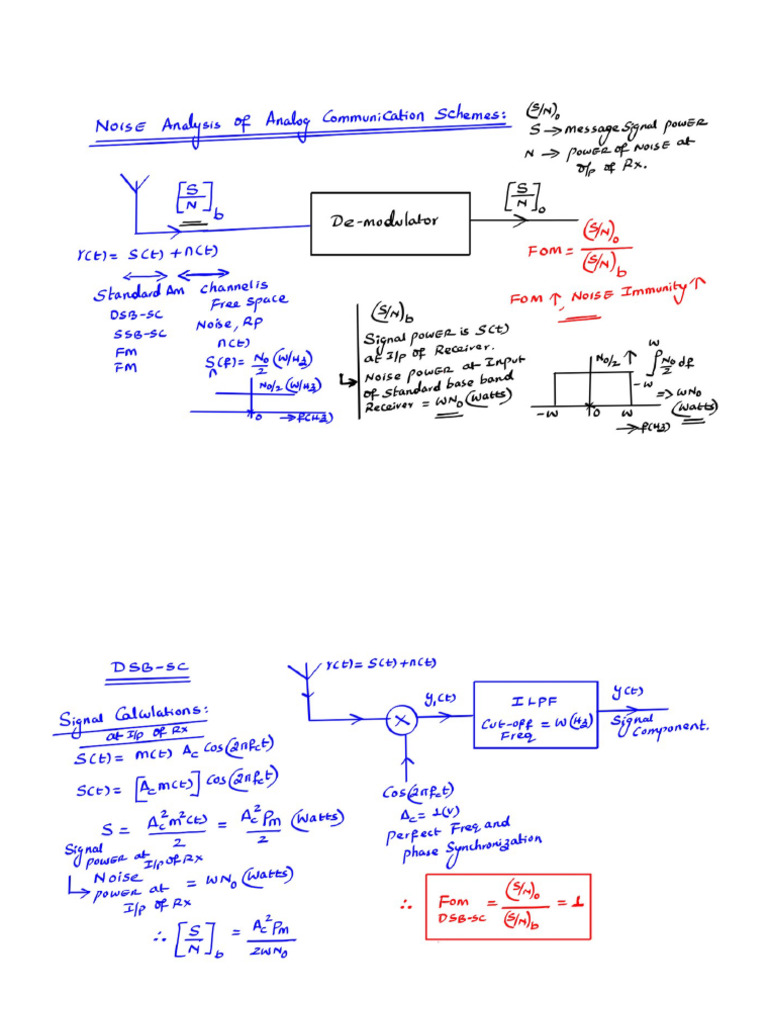 Noise Analysis of Analog Communication Schemes:
(S/N)₀
S → message signal power
N → power of Noise at
o/p of Rx.
[S/N]b
De-modulator
[S/N]₀
r(t) = S(t) + n(t)
Fom = (S/N)₀ / (S/N)b
Fom ↑, Noise Immunity ↑
Standard Am
DSB-SC
SSB-SC
FM
FM
channel is
Free space
Noise, RP
n(t)
Sn(f) = N₀/2 (W/Hz)
N₀/2 (W/Hz)
0 → f(Hz)
(S/N)b
Signal power is S(t)
at I/p of Receiver.
Noise power at Input
of Standard base band
Receiver = WN₀ (Watts)
N₀/2 ↑
-W 0 W
→ f(Hz)
∫ W -W N₀/2 df
=> WN₀
(Watts)
DSB-SC
Signal Calculations:
at I/p of Rx
S(t) = m(t) Ac Cos(2πfct)
S(t) = [Ac m(t)] Cos(2πfct)
S = Ac²m²(t)/2 = Ac²Pm/2 (Watts)
Signal
power at
I/p of Rx
Noise
power at = WN₀ (Watts)
I/p of Rx
∴ [S/N]b = Ac²Pm / 2WN₀
r(t) = S(t) + n(t)
×
y₁(t)
ILPF
Cut-off = W(Hz)
Freq
y(t)
Signal
Component.
Cos(2πfct)
Ac = 1(V)
perfect Freq and
phase Synchronization
∴ Fom DSB-SC = (S/N)₀ / (S/N)b = 1